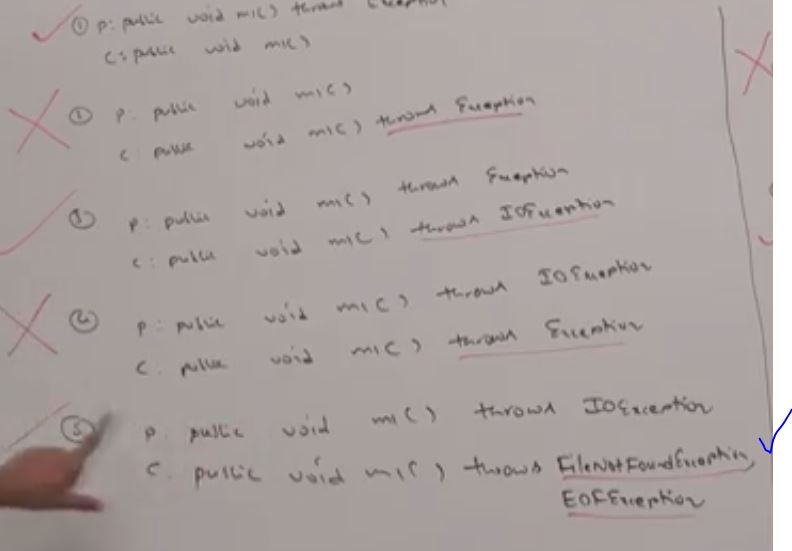 ① P: public void m1() throws Exception
C: public void m1()
② P: public void m1()
C: public void m1() throws Exception
③ P: public void m1() throws Exception
C: public void m1() throws IOException
④ P: public void m1() throws IOException
C: public void m1() throws Exception
⑤ P: public void m1() throws IOException
C: public void m1() throws FileNotFoundException,
EOFException